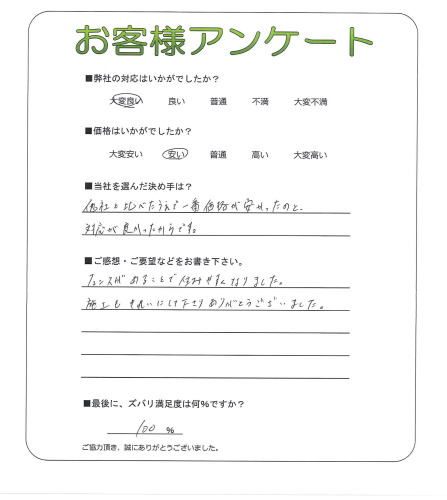 お客様アンケート
■弊社の対応はいかがでしたか？
大変良い 良い 普通 不満 大変不満
■価格はいかがでしたか？
大変安い 安い 普通 高い 大変高い
■当社を選んだ決め手は？
他社と比べたうえで一番価格が安かったのと、
対応が良かったからです。
■ご感想・ご要望などをお書き下さい。
フェンスがあることで住みやすくなりました。
施工もきれいにして下さりありがとうございました。
■最後に、ズバリ満足度は何%ですか？
100 %
ご協力頂き、誠にありがとうございました。